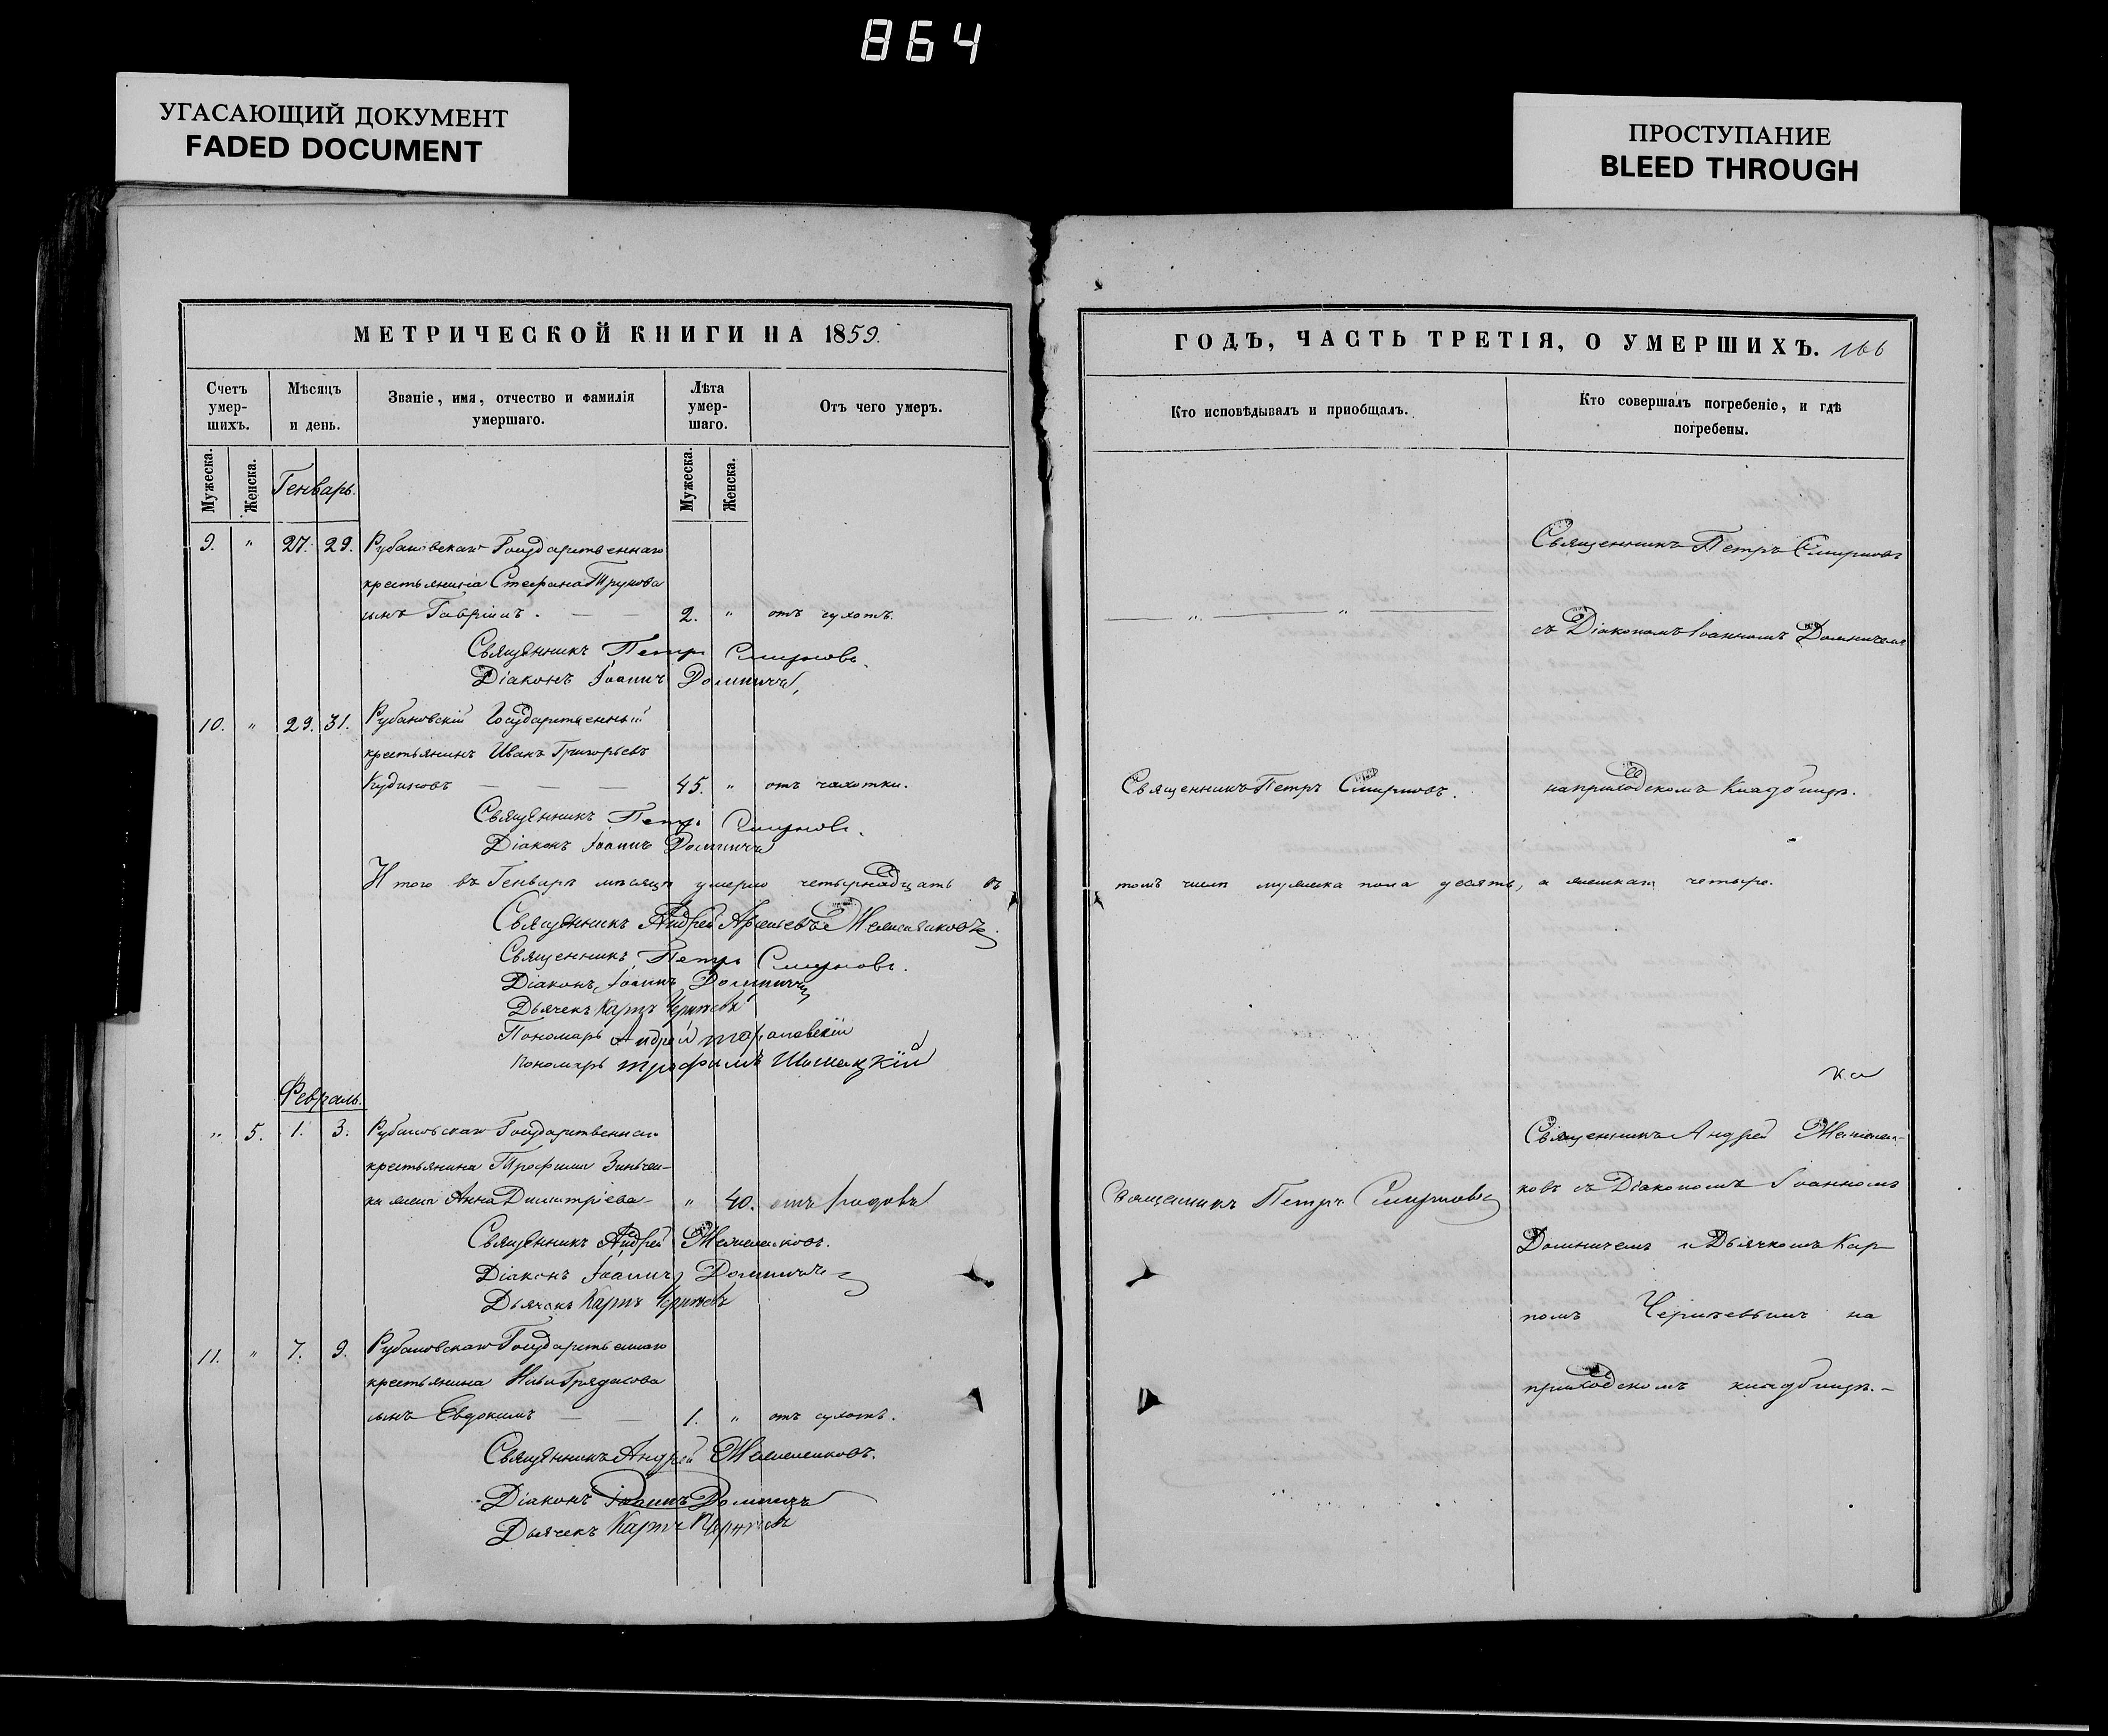 864
УГАСАЮЩИЙ ДОКУМЕНТ
FADED DOCUMENT
ПРОСТУПАНИЕ
BLEED THROUGH
МЕТРИЧЕСКОЙ КНИГИ НА 1859.
Счетъ умер-шихъ.
Мѣсяцъ и день.
Званіе, имя, отчество и фамилія умершаго.
Лѣта умер-шаго.
Отъ чего умеръ.
Мужеска.
Женска.
Генварь.
Мужеска.
Женска.
9. " 27. 29. Рубановскаго Государственнаго
крестьянина Стефана Трунова
сынъ Гавріилъ. — — 2. " отъ сухотъ.
Священникъ Петръ Смирновъ.
Діаконъ Іоаннъ Домничъ
10. " 29. 31. Рубановскій Государственный
крестьянинъ Иванъ Григорьевъ
Кудиновъ — — — 45. " отъ чахотки.
Священникъ Петръ Смирновъ.
Діаконъ Іоаннъ Домничъ
Итого въ Генварѣ мѣсяцѣ умерло четырнадцать въ
Священникъ Андрей Арсеньевъ
Священникъ Петръ Смирновъ.
Діаконъ Іоаннъ Домничъ
Дьячекъ Карпъ
Пономарь Андрей
Пономарь Трофимъ
Февраль.
" 5. 1. 3. Рубановскаго Государственнаго
крестьянина Трофима Зинчен-
ка жена Анна Димитріева — " 40. отъ родовъ
Священникъ Андрей
Діаконъ Іоаннъ Домничъ
Дьячекъ Карпъ
11. " 7. 9. Рубановскаго Государственнаго
крестьянина
сынъ Евдокимъ — — 1. " отъ сухотъ.
Священникъ Андрей
Діаконъ Іоаннъ Домничъ
Дьячекъ Карпъ
ГОДЪ, ЧАСТЬ ТРЕТІЯ, О УМЕРШИХЪ. 166
Кто исповѣдывалъ и приобщалъ.
Кто совершалъ погребеніе, и гдѣ погребены.
Священникъ Петръ Смирновъ
— " — " —
съ Діакономъ Іоанномъ Домничемъ
Священникъ Петръ Смирновъ.
на приходскомъ кладбищѣ.
томъ числѣ мужеска пола десять, а женскаго четыре.
Священникъ Андрей
Священникъ Петръ Смирновъ
ковъ съ Діакономъ Іоанномъ
Домничемъ и Дьячкомъ Кар-
помъ на
приходскомъ кладбищѣ.-